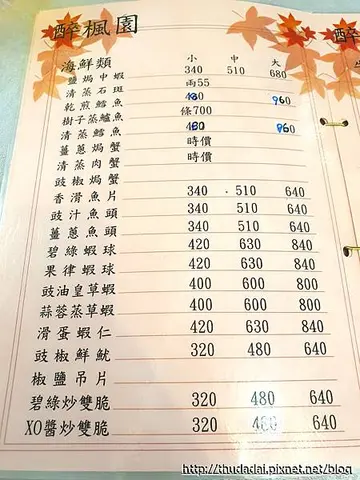 醉楓園
海鮮類 小 中 大
鹽焗中蝦 340 510 680
清蒸石斑 兩55
乾煎鱈魚 960
樹子蒸鱸魚 條700
清蒸鱈魚
薑蔥焗蟹 時價
清蒸肉蟹 時價
豉椒焗蟹
香滑魚片 340 510 640
豉汁魚頭 340 510 640
薑蔥魚頭 340 510 640
碧綠蝦球 420 630 840
果律蝦球 420 630 840
豉油皇草蝦 400 600 800
蒜蓉蒸草蝦 400 600 800
滑蛋蝦仁 420 630 840
豉椒鮮魷 320 480 640
椒鹽吊片
碧綠炒雙脆 320 480 640
XO醬炒雙脆 320 480 640
醉
http://thudadai.pixnet.net/blog